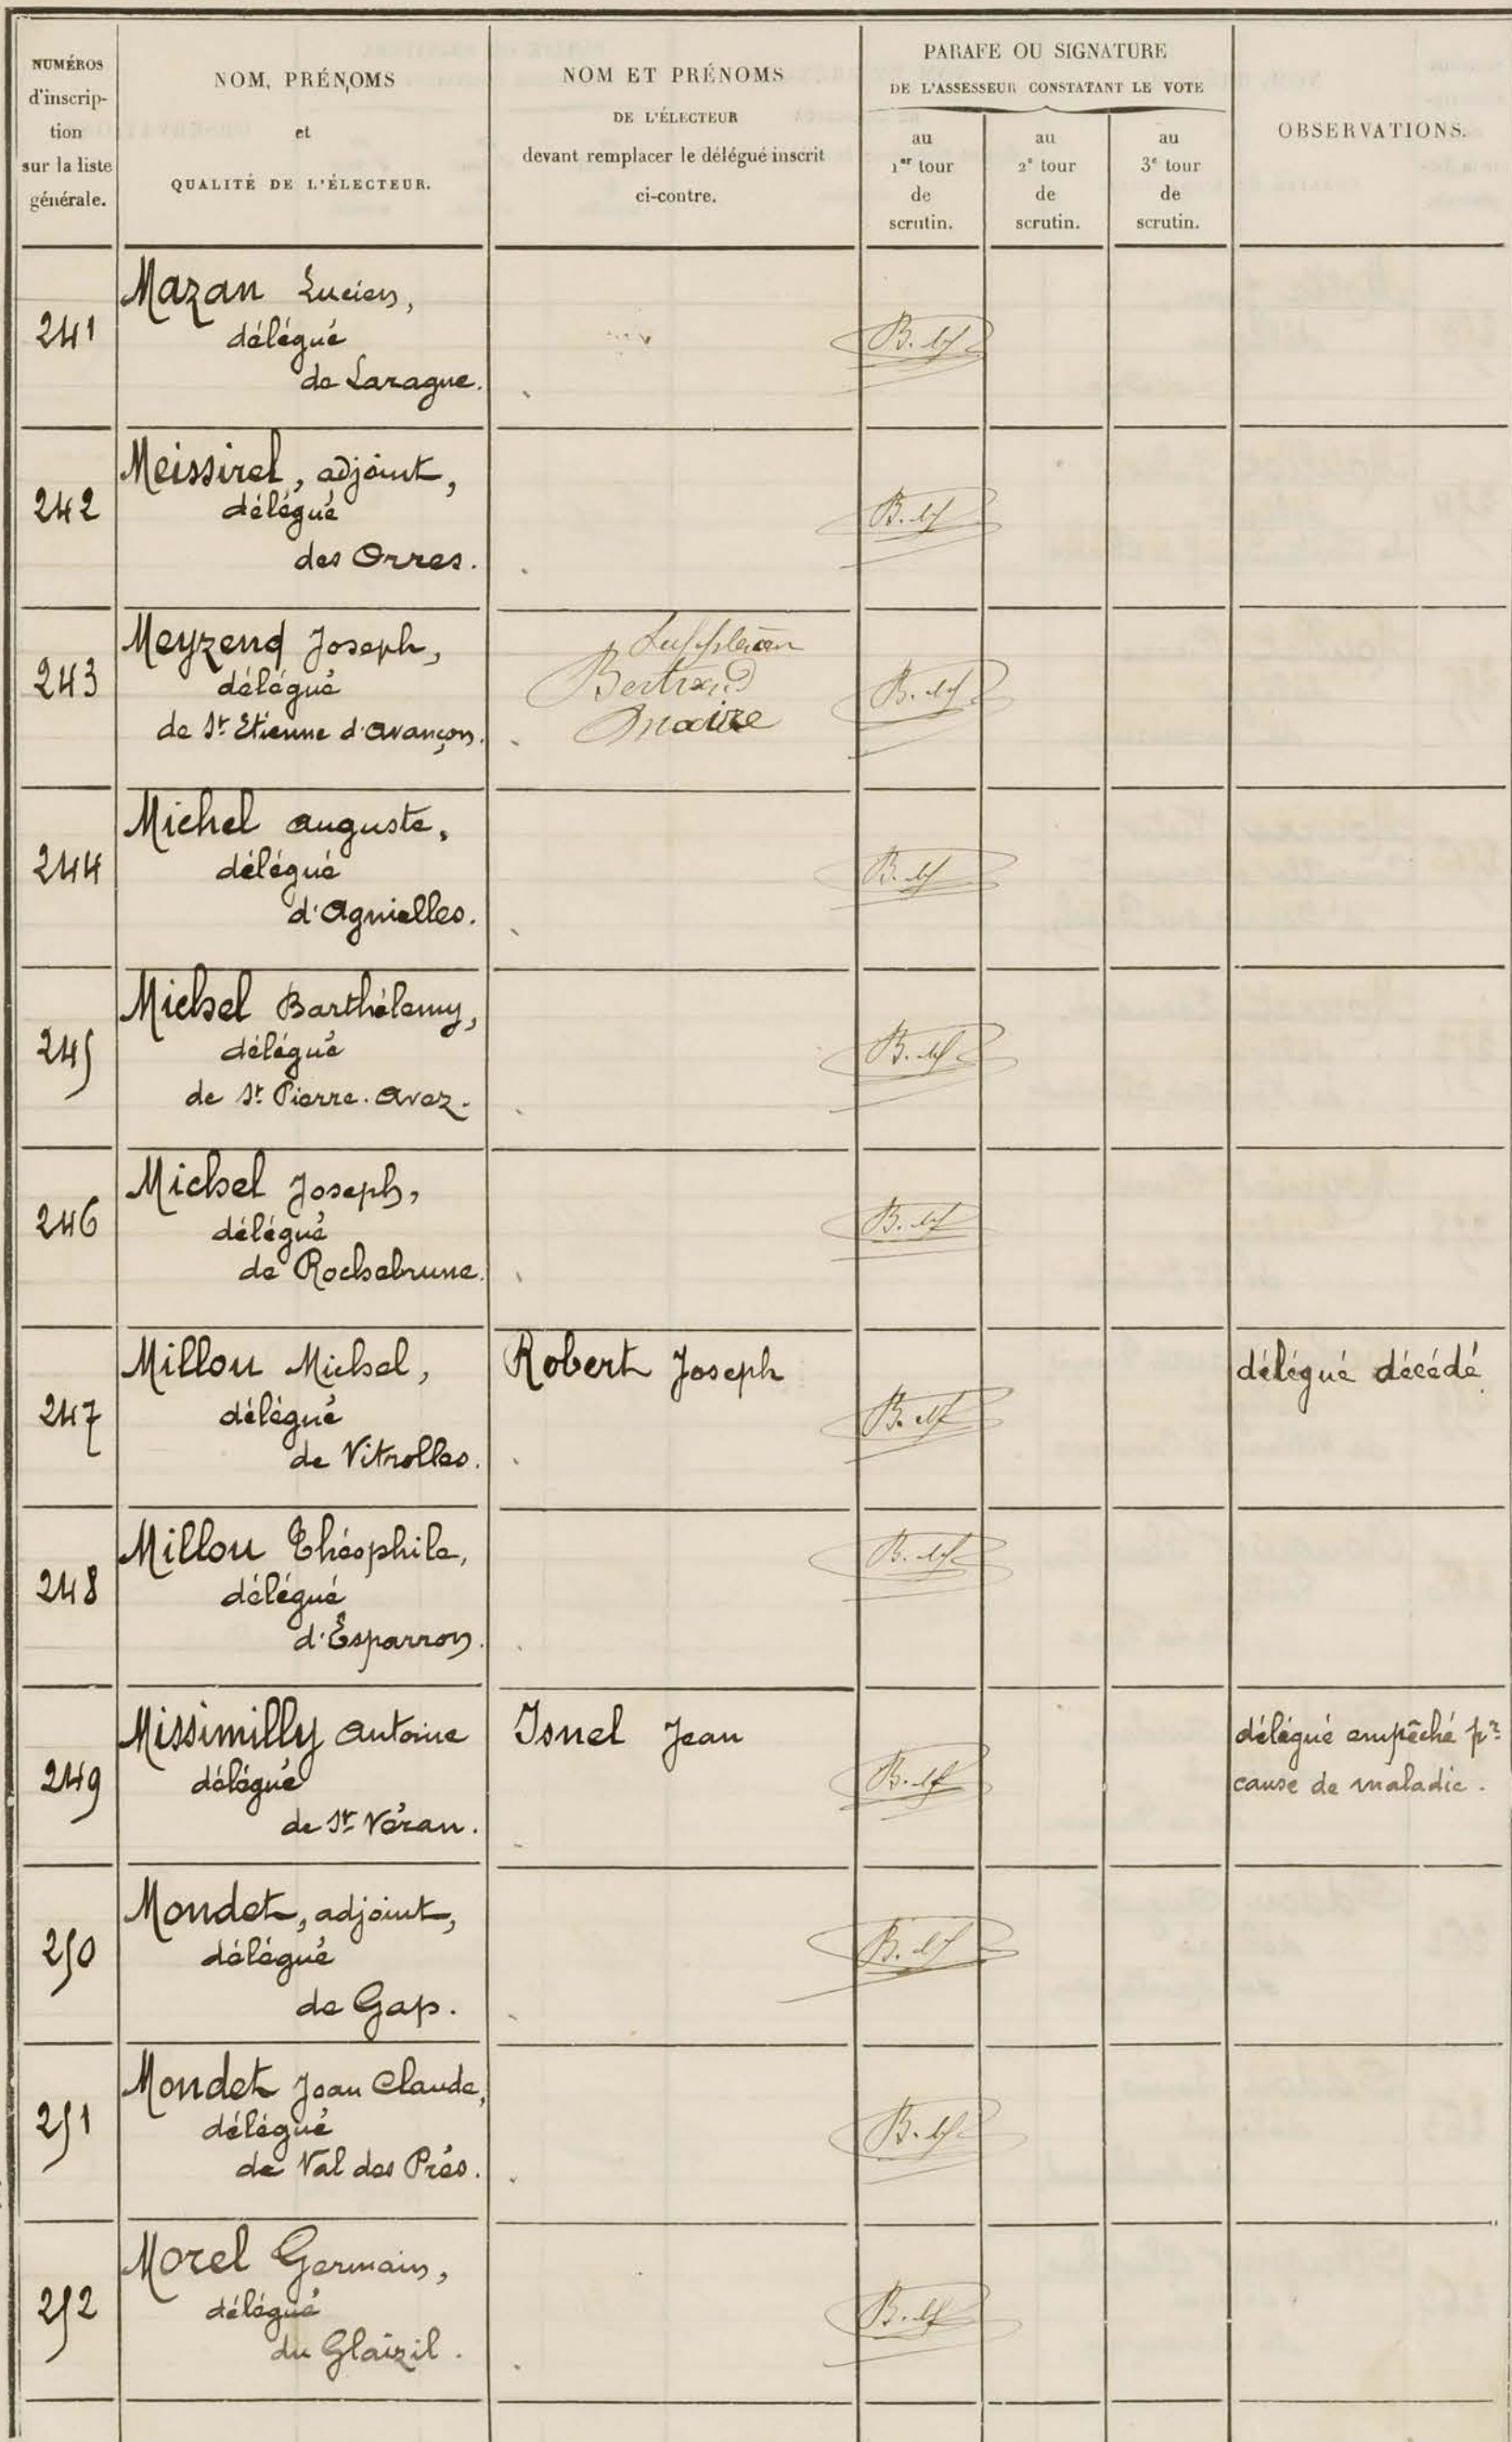 NUMÉROS
d'inscrip-
tion
sur la liste
générale.
NOM, PRÉNOMS
et
QUALITÉ DE L'ÉLECTEUR.
NOM ET PRÉNOMS
DE L'ÉLECTEUR
devant remplacer le délégué inscrit
ci-contre.
PARAFE OU SIGNATURE
DE L'ASSESSEUR CONSTATANT LE VOTE
au
1er tour
de
scrutin.
au
2e tour
de
scrutin.
au
3e tour
de
scrutin.
OBSERVATIONS.
241
Mazan Lucien,
délégué
de Laragne.
242
Meissirel, adjoint,
délégué
des Orres.
243
Meyzend Joseph,
délégué
de St Etienne d'Avançon.
Bertrand
maire
244
Michel Auguste,
délégué
d'Agnielles.
245
Michel Barthélemy,
délégué
de St Pierre-Avez.
246
Michel Joseph,
délégué
de Rochebrune.
247
Millou Michel,
délégué
de Vitrolles.
Robert Joseph
délégué décédé
248
Millou Théophile,
délégué
d'Esparron.
249
Missimilly Antoine
délégué
de St Véran.
Isnel Jean
délégué empêché pr
cause de maladie.
250
Mondet, adjoint,
délégué
de Gap.
251
Mondet Jean Claude,
délégué
de Val des Prés.
252
Morel Germain,
délégué
du Glaizil.